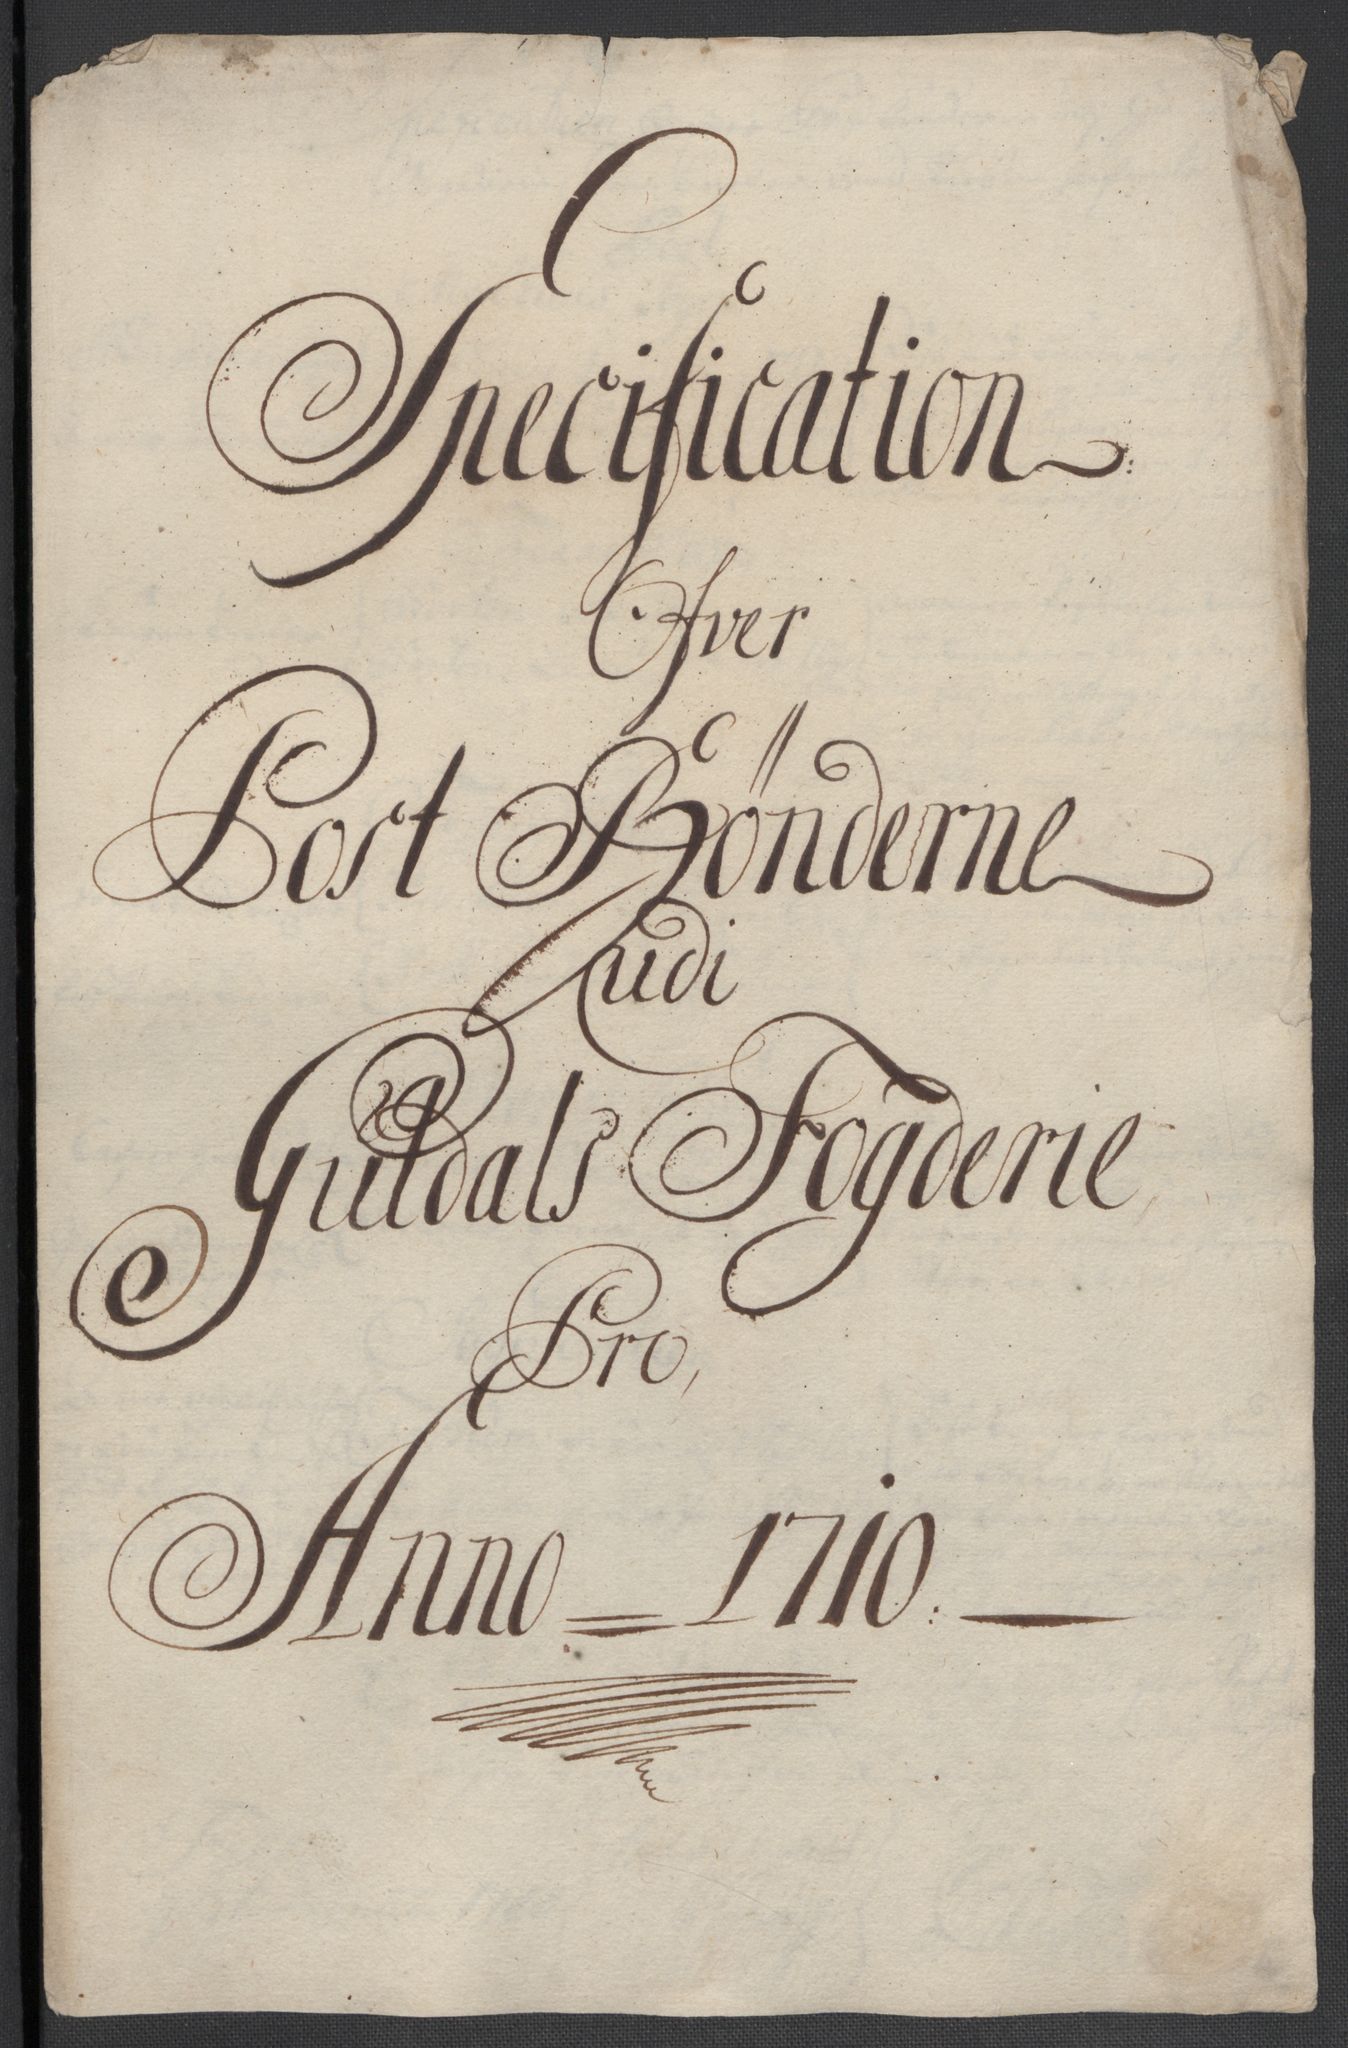 Specification
Ofver
Post Bönderne
udi
Guldals Fogderie
Pro,
Anno = 1710. —